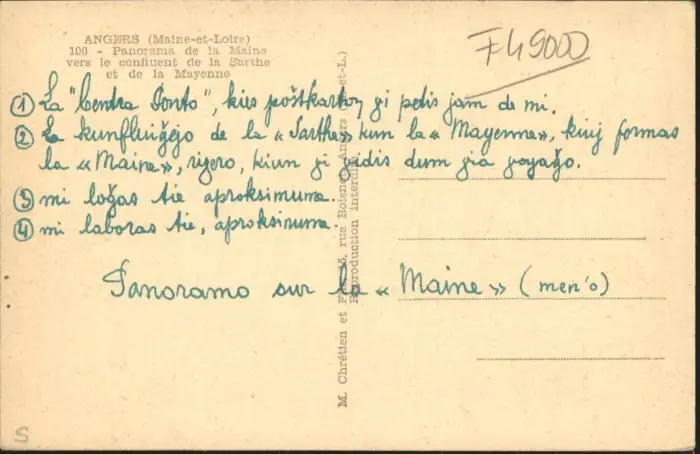 ANGERS (Maine-et-Loire)
100 - Panorama de la Maine
vers le confluent de la Sarthe
et de la Mayenne
F49000
① La "Centra Ponto", kies poŝtkarton ĝi petis jam de mi.
② La kunfluiĝejo de la « Sarthe » kun la « Mayenne », kiuj formas
la « Maine », rigero, kiun ĝi vidis dum ĝia voyaĝo.
③ mi loĝas tie aproksimume.
④ mi laboras tie, aproksimume.
Panoramo sur la « Maine » (men'o)
M. Chrétien et 5, rue Boisnet, Angers
Reproduction interdite
S